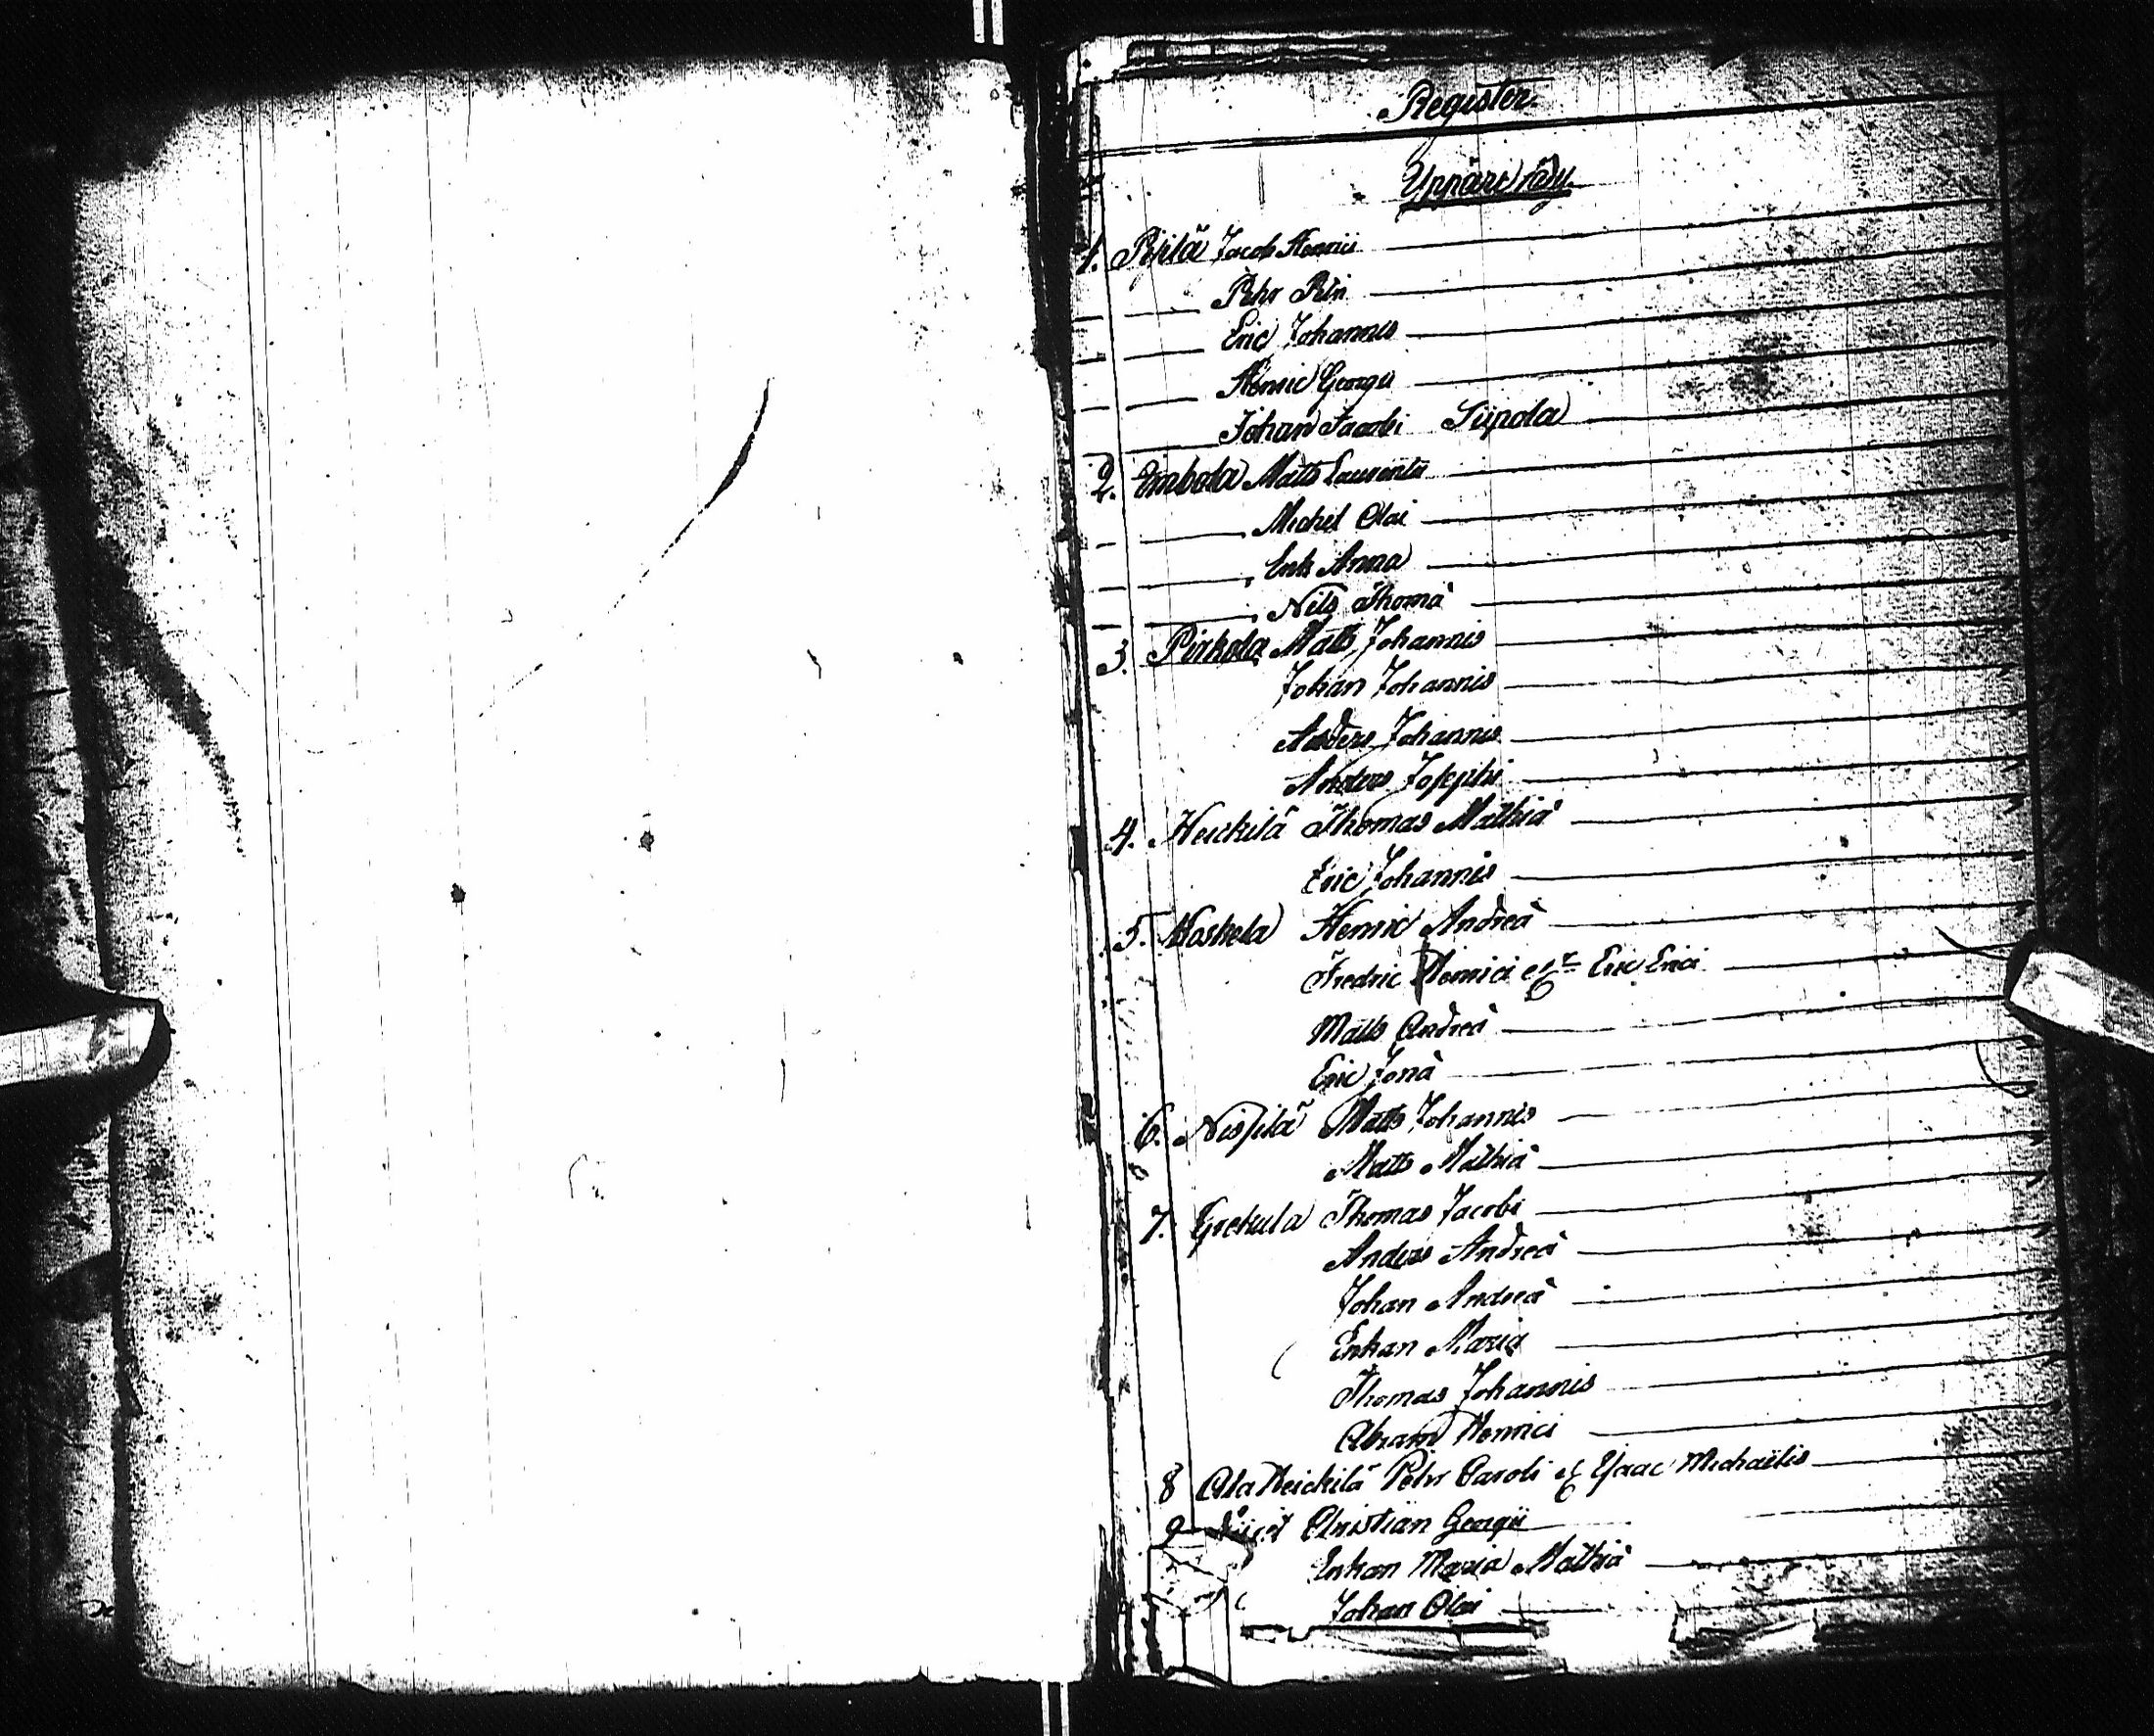 Register.
Uppäre rädy.
1. Pijilä Jacob Henrici
Pehr Pehr
Eric Johannis
Henric Georgii
Johan Jacobi Siipola
2. Embola Matts Laurentii
Michel Olai
Enk Anna
Nils Thomä
3. Pirkola Matts Johannis
Johan Johannis
Anders Johannis
Anders Josephi
4. Heickilä Thomas Mathiä
Eric Johannis
5. Koskela Henric Andreä
Fredric Henrici Eric Erici
Matts Andreä
Eric Jonä
6. Nissilä Matts Johannis
Matts Mathiä
7. Grekula Thomas Jacobi
Anders Andreä
Johan Andreä
Enkan Maria
Thomas Johannis
Abram Henrici
8 Ala Heickilä Pehr Caroli et Isaac Michaëlis
9 Christian Georgii
Enkan Maria Mathiä
Johan Olai